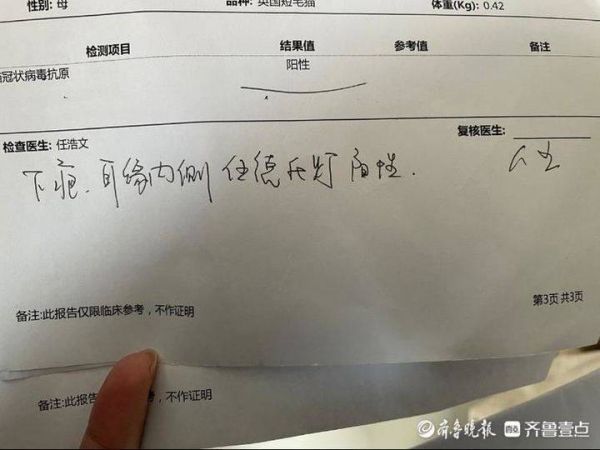 性别: 母 品种: 英国短毛猫 体重(Kg): 0.42
检测项目 结果值 参考值 备注
冠状病毒抗原 阳性
检查医生: 任浩文 复核医生:
下痕、耳缘内侧 伍德氏灯 阳性.
备注:此报告仅限临床参考，不作证明
第3页 共3页
备注:此报告 ，不作证明
齐鲁晚报 齐鲁壹点